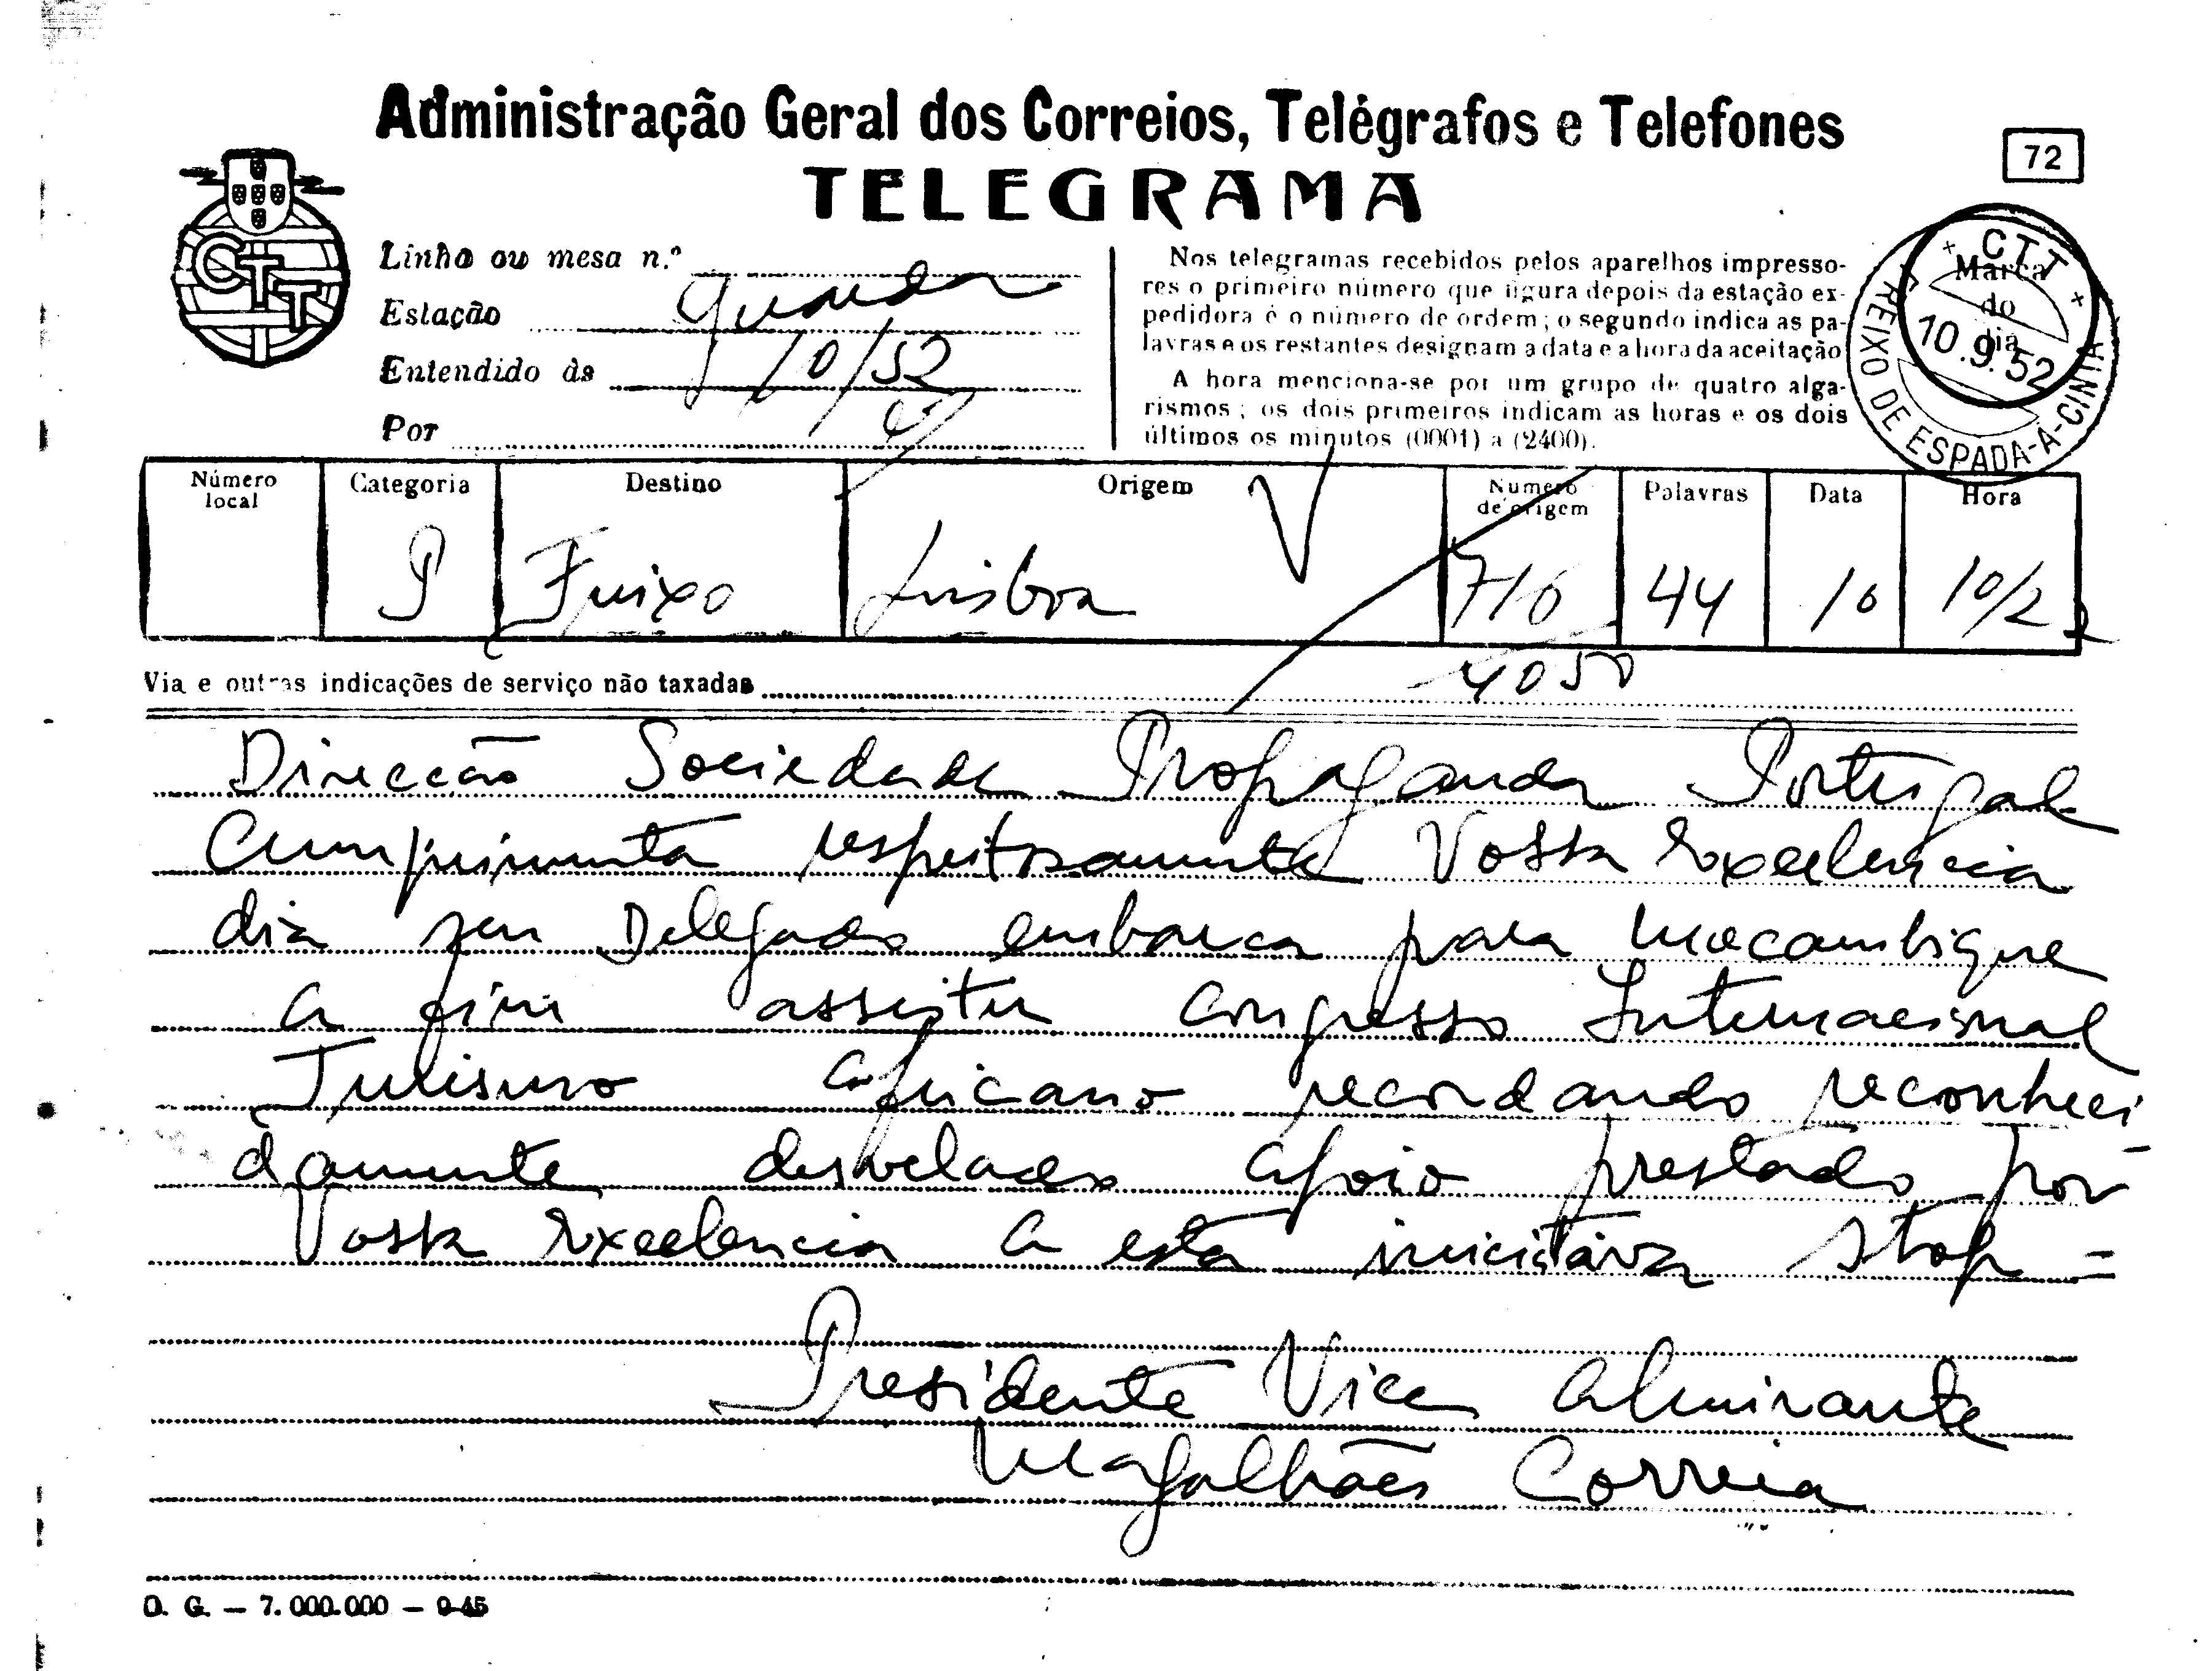 Administração Geral dos Correios, Telégrafos e Telefones
TELEGRAMA
72
CTT
Linha ou mesa n.º
Estação Guarda
Entendido às 10/52
Por
Nos telegramas recebidos pelos aparelhos impresso-
res o primeiro número que figura depois da estação ex-
pedidora é o número de ordem; o segundo indica as pa-
lavras e os restantes designam a data e a hora da aceitação
A hora menciona-se por um grupo de quatro alga-
rismos; os dois primeiros indicam as horas e os dois
últimos os minutos (0001) a (2400).
CTT
Marca
do
dia
10.9.52
FREIXO DE ESPADA-A-CINTA
Número local Categoria Destino Origem Número de origem Palavras Data Hora
P Freixo Lisboa 716 44 10 10/22
Via e outras indicações de serviço não taxadas 4050
Direccão Sociedade Propaganda Portugal
Cumprimenta respeitosamente Vossa Excelencia
dia seu Delegado embarca para Mocambique
a fim assistir Congresso Internacional
Turismo Africano recordando reconheci
damente desvelado apoio prestado por
Vossa Excelencia a esta iniciativa stop =
Presidente Vice Almirante
Magalhães Correia
O. G. — 7.000.000 — 9-45